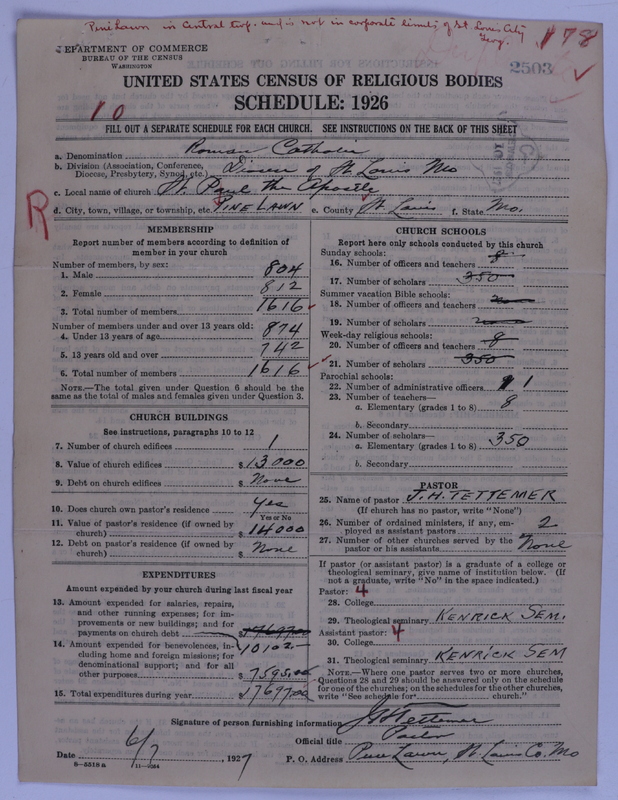 Pine Lawn in Central twp. and is not in corporate limits of St Louis City
178
2503
DEPARTMENT OF COMMERCE
BUREAU OF THE CENSUS
WASHINGTON
UNITED STATES CENSUS OF RELIGIOUS BODIES
SCHEDULE: 1926
10
FILL OUT A SEPARATE SCHEDULE FOR EACH CHURCH. SEE INSTRUCTIONS ON THE BACK OF THIS SHEET
a. Denomination Roman Catholic
b. Division (Association, Conference, Diocese, Presbytery, Synod, etc.) Diocese of St Louis Mo
c. Local name of church St. Paul the Apostle
R
d. City, town, village, or township, etc. PINE LAWN e. County St. Louis f. State Mo.
MEMBERSHIP
Report number of members according to definition of
member in your church
Number of members, by sex:
1. Male 804
2. Female 812
3. Total number of members 1616
Number of members under and over 13 years old:
4. Under 13 years of age 874
5. 13 years old and over 742
6. Total number of members 1616
NOTE.—The total given under Question 6 should be the
same as the total of males and females given under Question 3.
CHURCH BUILDINGS
See instructions, paragraphs 10 to 12
7. Number of church edifices 1
8. Value of church edifices $13000
9. Debt on church edifices $ None
10. Does church own pastor's residence? yes
Yes or No
11. Value of pastor's residence (if owned by
church) $14000
12. Debt on pastor's residence (if owned by
church) $ None
EXPENDITURES
Amount expended by your church during last fiscal year
13. Amount expended for salaries, repairs,
and other running expenses; for im-
provements or new buildings; and for
payments on church debt $17697.00
10102-
14. Amount expended for benevolences, in-
cluding home and foreign missions; for
denominational support; and for all
other purposes $7595.00
15. Total expenditures during year $17697.00
CHURCH SCHOOLS
Report here only schools conducted by this church
Sunday schools:
16. Number of officers and teachers 8
17. Number of scholars 350
Summer vacation Bible schools:
18. Number of officers and teachers
19. Number of scholars
Week-day religious schools:
20. Number of officers and teachers 8
21. Number of scholars 350
Parochial schools:
22. Number of administrative officers 1
23. Number of teachers—
a. Elementary (grades 1 to 8) 8
b. Secondary
24. Number of scholars—
a. Elementary (grades 1 to 8) 350
b. Secondary
PASTOR
25. Name of pastor J. H. TETTEMER
(If church has no pastor, write "None")
26. Number of ordained ministers, if any, em-
ployed as assistant pastors 2
27. Number of other churches served by the
pastor or his assistants None
If pastor (or assistant pastor) is a graduate of a college or
theological seminary, give name of institution below. (If
not a graduate, write "No" in the space indicated.)
Pastor: 4
28. College
29. Theological seminary KENRICK SEM.
Assistant pastor: 4
30. College
31. Theological seminary KENRICK SEM
NOTE.—Where one pastor serves two or more churches,
Questions 28 and 29 should be answered only on the schedule
for one of the churches; on the schedules for the other churches,
write "See schedule for church."
Signature of person furnishing information J H Tettemer
Official title Pastor
Date 6/7, 1927 P. O. Address Pine Lawn, St. Louis Co. Mo
8—5518 a 11—9264